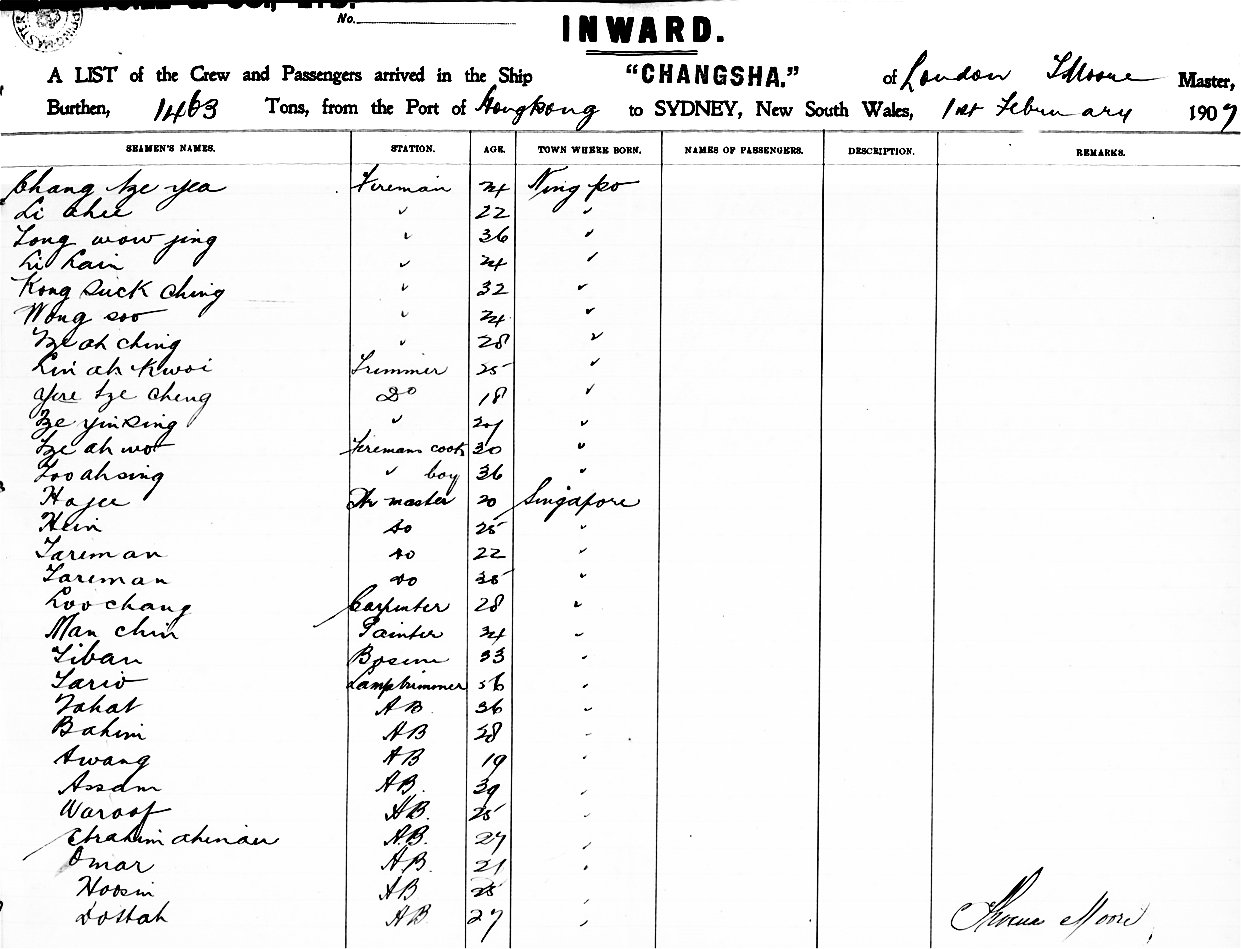 & CO., LTD.
No.
INWARD.
A LIST of the Crew and Passengers arrived in the Ship "CHANGSHA." of London T Moore Master,
Burthen, 1463 Tons, from the Port of Hongkong to SYDNEY, New South Wales, 1st February 1907
SEAMEN'S NAMES. STATION. AGE. TOWN WHERE BORN. NAMES OF PASSENGERS. DESCRIPTION. REMARKS.
Chang tze yea Fireman 24 Ningpo
Li ahee " 22 "
Long wow jing " 36 "
Li Lain " 24 "
Kong Suck Ching " 32 "
Wong soo " 24 "
Tze ah ching " 28 "
Lin ah Kwoi Trimmer 25 "
Yee tze cheng Do 18 "
Tze yin sing " 27 "
Tze ah wo Firemans cook 30 "
Loo ah sing " boy 36 "
Hajee Qr master 20 Singapore
Hein do 25 "
Tareman do 22 "
Tareman do 35 "
Loo chang Carpenter 28 "
Man chin Painter 34 "
Tiban Bosun 33 "
Tario Lamptrimmer 36 "
Tahat AB. 36 "
Bahim AB 28 "
Awang AB 19 "
Assam AB. 39 "
AB. 25 "
Ebrahim A.B. 27 "
Omar AB. 21 "
Hoosin AB 25 "
Dollah AB 27 "
Moore